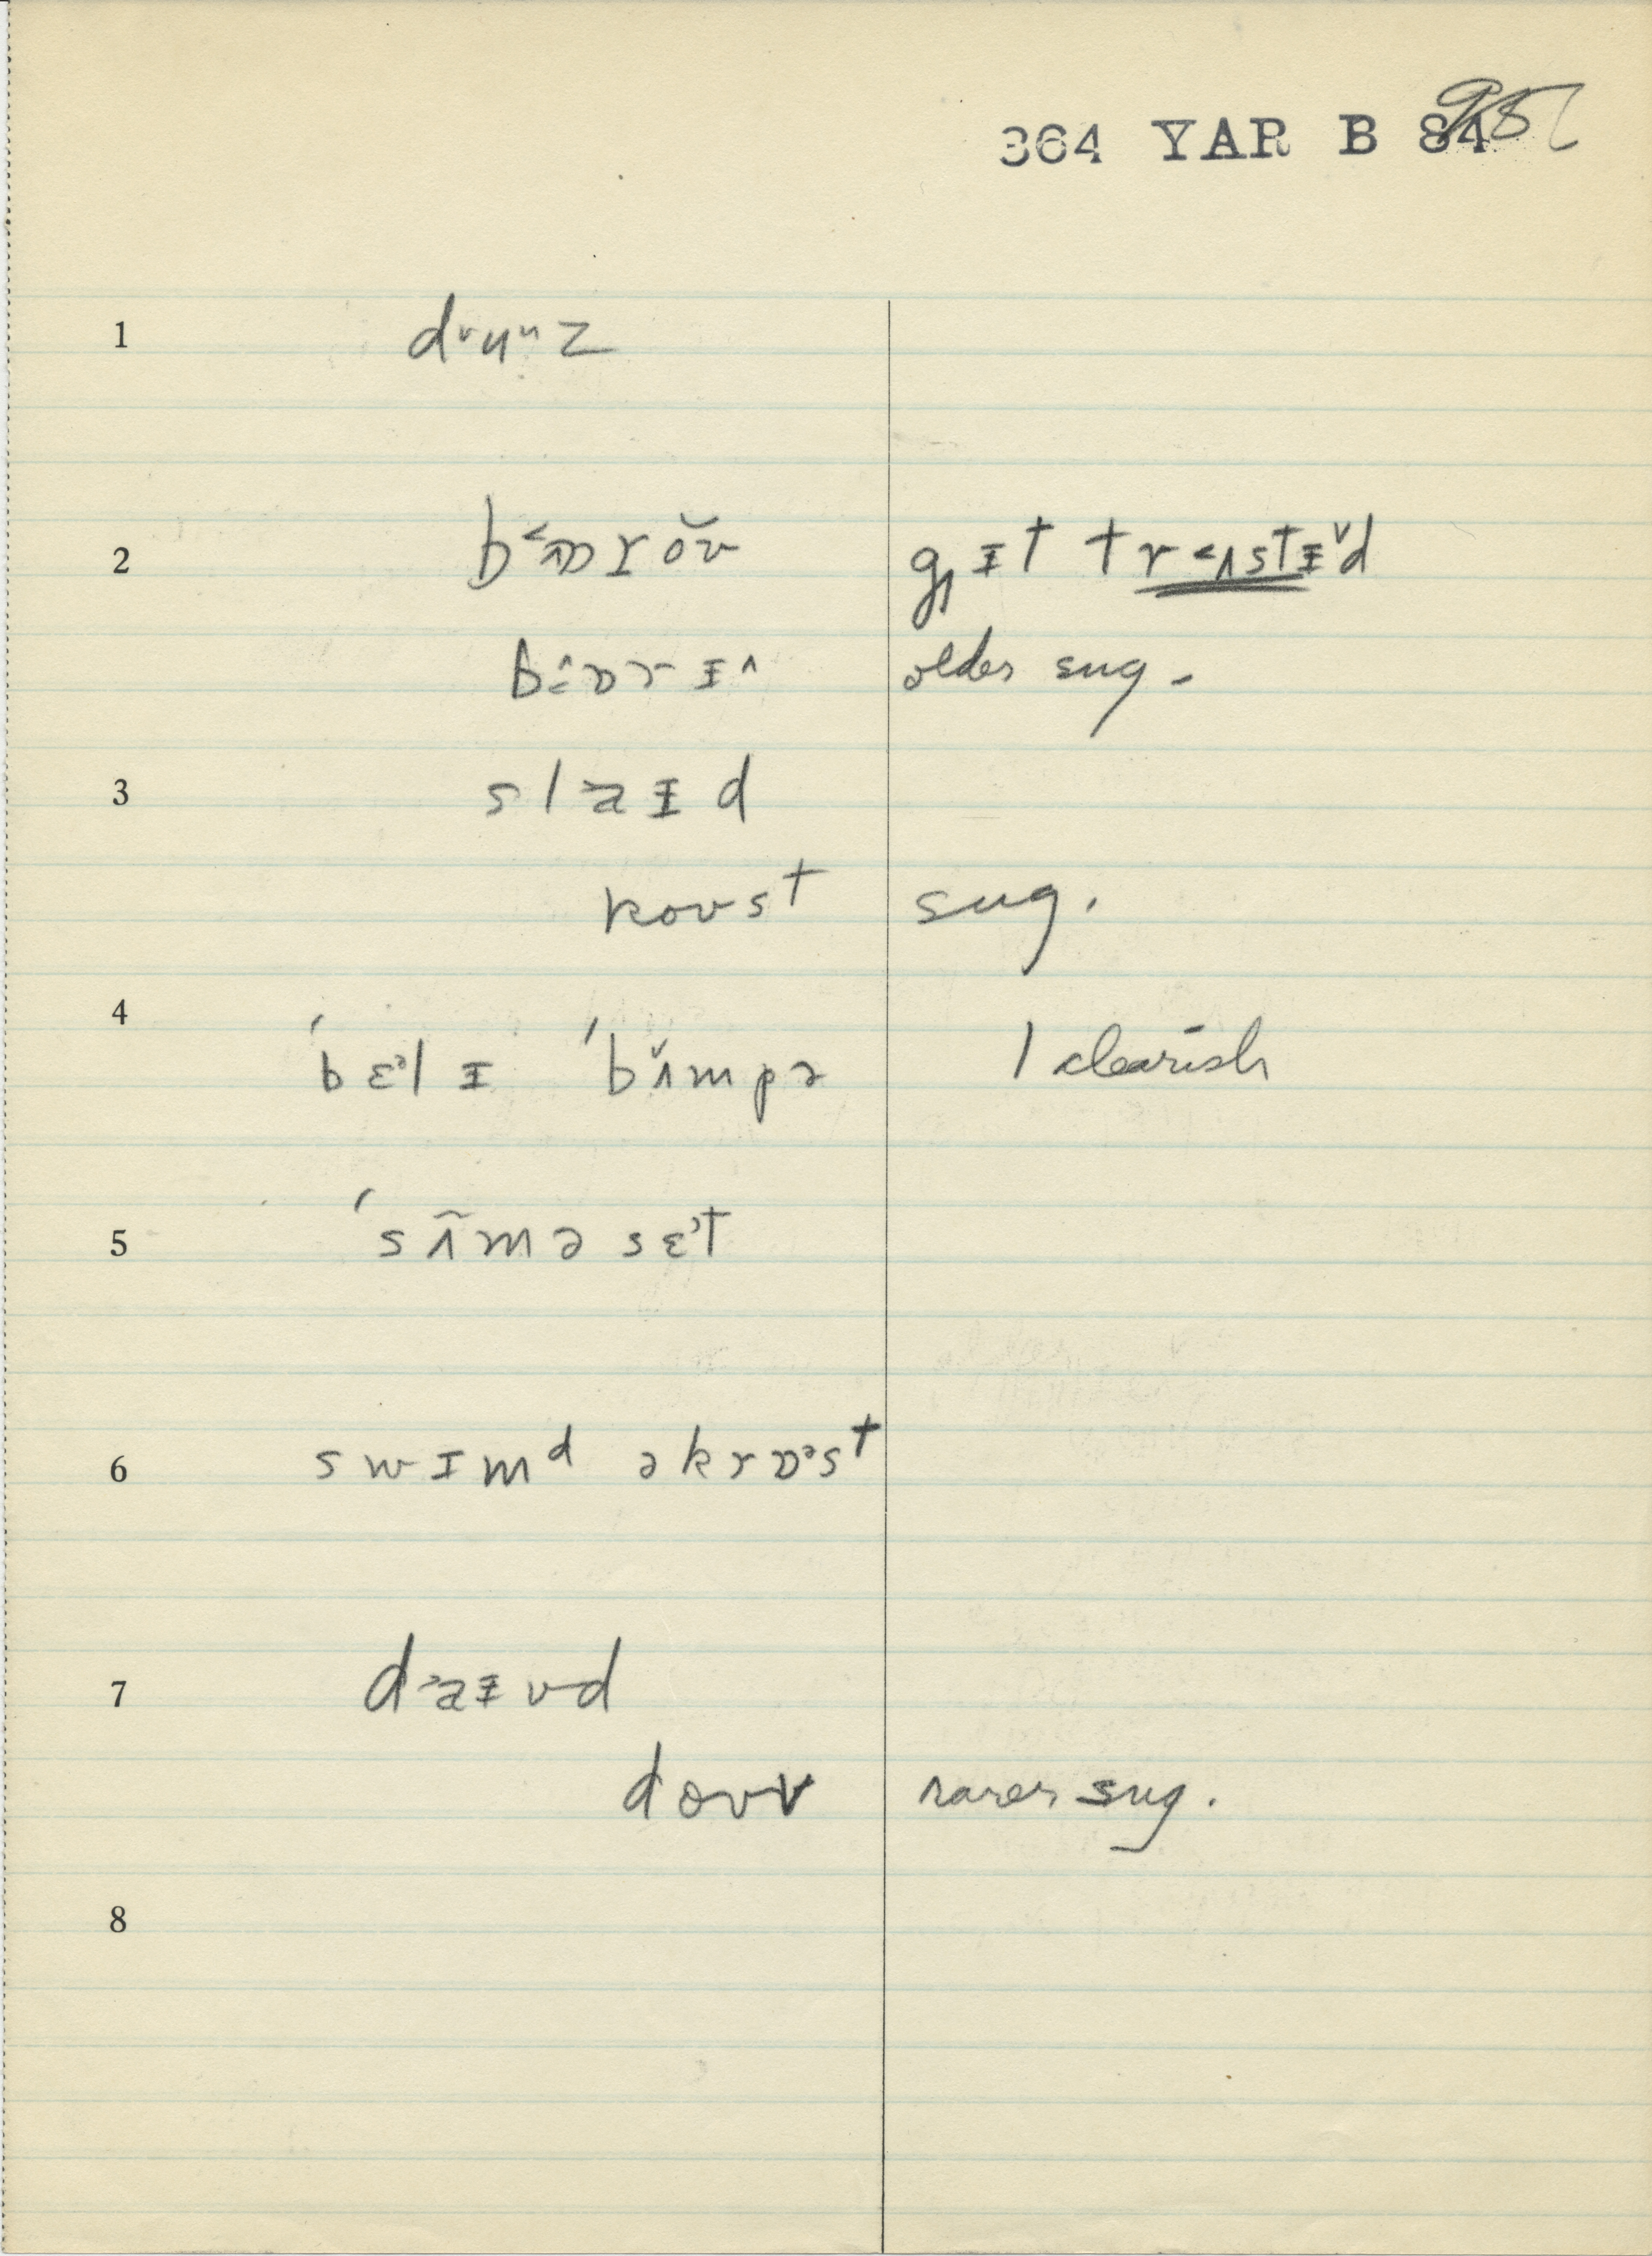 364 YAR B 84 95
1 d˅uᵘz
2 b˂ɒrŏʊ g̗ᵻt tr˂ʌstᵻ˅d
bɔ̂ɒrᵻ^ older sug.
3 slaᵻd
koʊst sug.
4 ˈbɛ˃lᵻ ˈbʌ̌mpə l clearish
5 ˈsʌ̃məsɛ˃t
6 swɪmᵈ əkrɒ˃st
7 d˃aᵻvd
doʊv rarer sug.
8